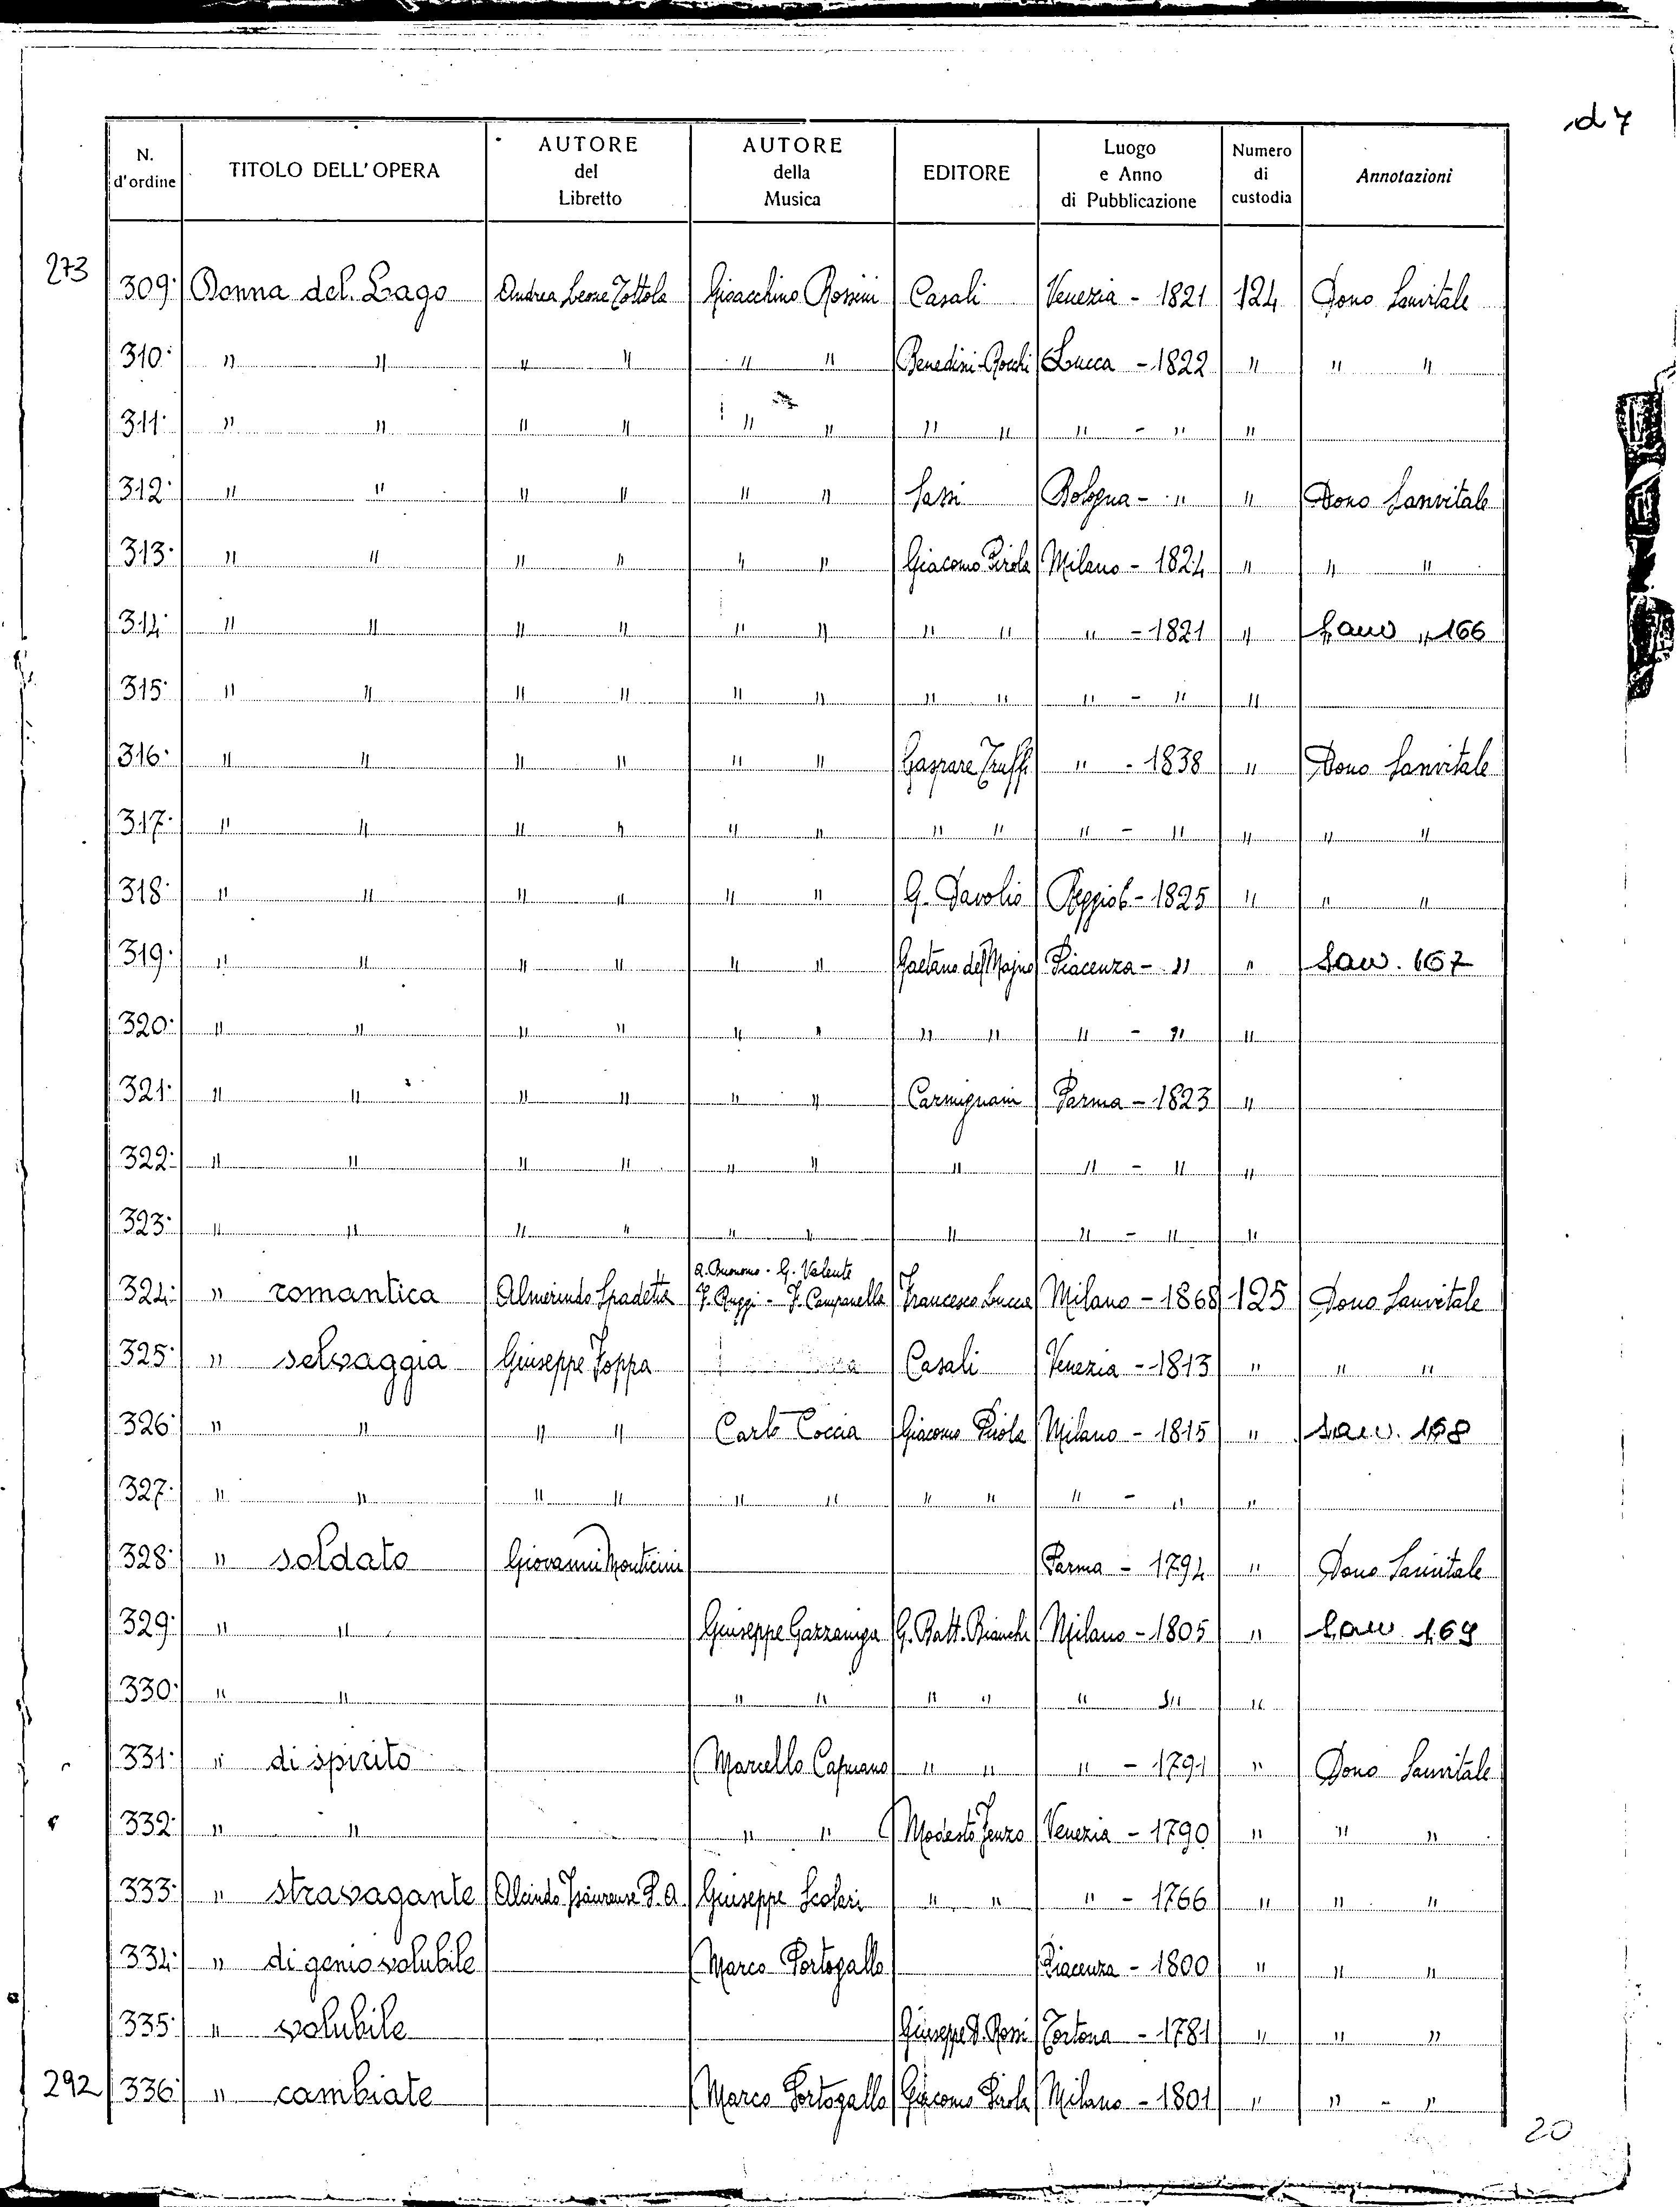 d 7
N. d'ordine | TITOLO DELL'OPERA | AUTORE del Libretto | AUTORE della Musica | EDITORE | Luogo e Anno di Pubblicazione | Numero di custodia | Annotazioni
273 | 309 | Donna del Lago | Andrea Leone Tottola | Gioacchino Rossini | Casali | Venezia - 1821 | 124 | Dono Sanvitale
310 | " " | " " | " " | Benedini-Rocchi | Lucca - 1822 | " | " "
311 | " " | " " | " " | " " | " - " | " |
312 | " " | " " | " " | Sassi | Bologna - " | " | Dono Sanvitale
313 | " " | " " | " " | Giacomo Pirola | Milano - 1824 | " | " "
314 | " " | " " | " " | " " | " - 1821 | " | Sanv. 166
315 | " " | " " | " " | " " | " - " | " |
316 | " " | " " | " " | Gaspare Truffi | " - 1838 | " | Dono Sanvitale
317 | " " | " " | " " | " " | " - " | " | " "
318 | " " | " " | " " | G. Davolio | Reggio E - 1825 | " | " "
319 | " " | " " | " " | Gaetano del Majno | Piacenza - " | " | Sanv. 167
320 | " " | " " | " " | " " | " - " | " |
321 | " " | " " | " " | Carmignani | Parma - 1823 | " |
322 | " " | " " | " " | " | " - " | " |
323 | " " | " " | " " | " | " - " | " |
324 | " romantica | Almerindo Spadetta | A. Buonomo - G. Valente
F. Ruggi - F. Campanella | Francesco Lucca | Milano - 1868 | 125 | Dono Sanvitale
325 | " selvaggia | Giuseppe Foppa | | Casali | Venezia - 1813 | " | " "
326 | " " | " " | Carlo Coccia | Giacomo Pirola | Milano - 1815 | " | Sanv. 168
327 | " " | " " | " " | " " | " - " | " |
328 | " soldato | Giovanni Monticini | | | Parma - 1794 | " | Dono Sanvitale
329 | " " | | Giuseppe Gazzaniga | G. Batt. Bianchi | Milano - 1805 | " | Sanv. 169
330 | " " | | " " | " " | " " | " |
331 | " di spirito | | Marcello Capuano | " " | " - 1791 | " | Dono Sanvitale
332 | " " | | " " | Modesto Fenzo | Venezia - 1790 | " | " "
333 | " stravagante | Alcindo Isaurense P. A. | Giuseppe Scolari | " " | " - 1766 | " | " "
334 | " di genio volubile | | Marco Portogallo | | Piacenza - 1800 | " | " "
335 | " volubile | | | Giuseppe D. Rossi | Tortona - 1781 | " | " "
292 | 336 | " cambiate | | Marco Portogallo | Giacomo Pirola | Milano - 1801 | " | " - "
20